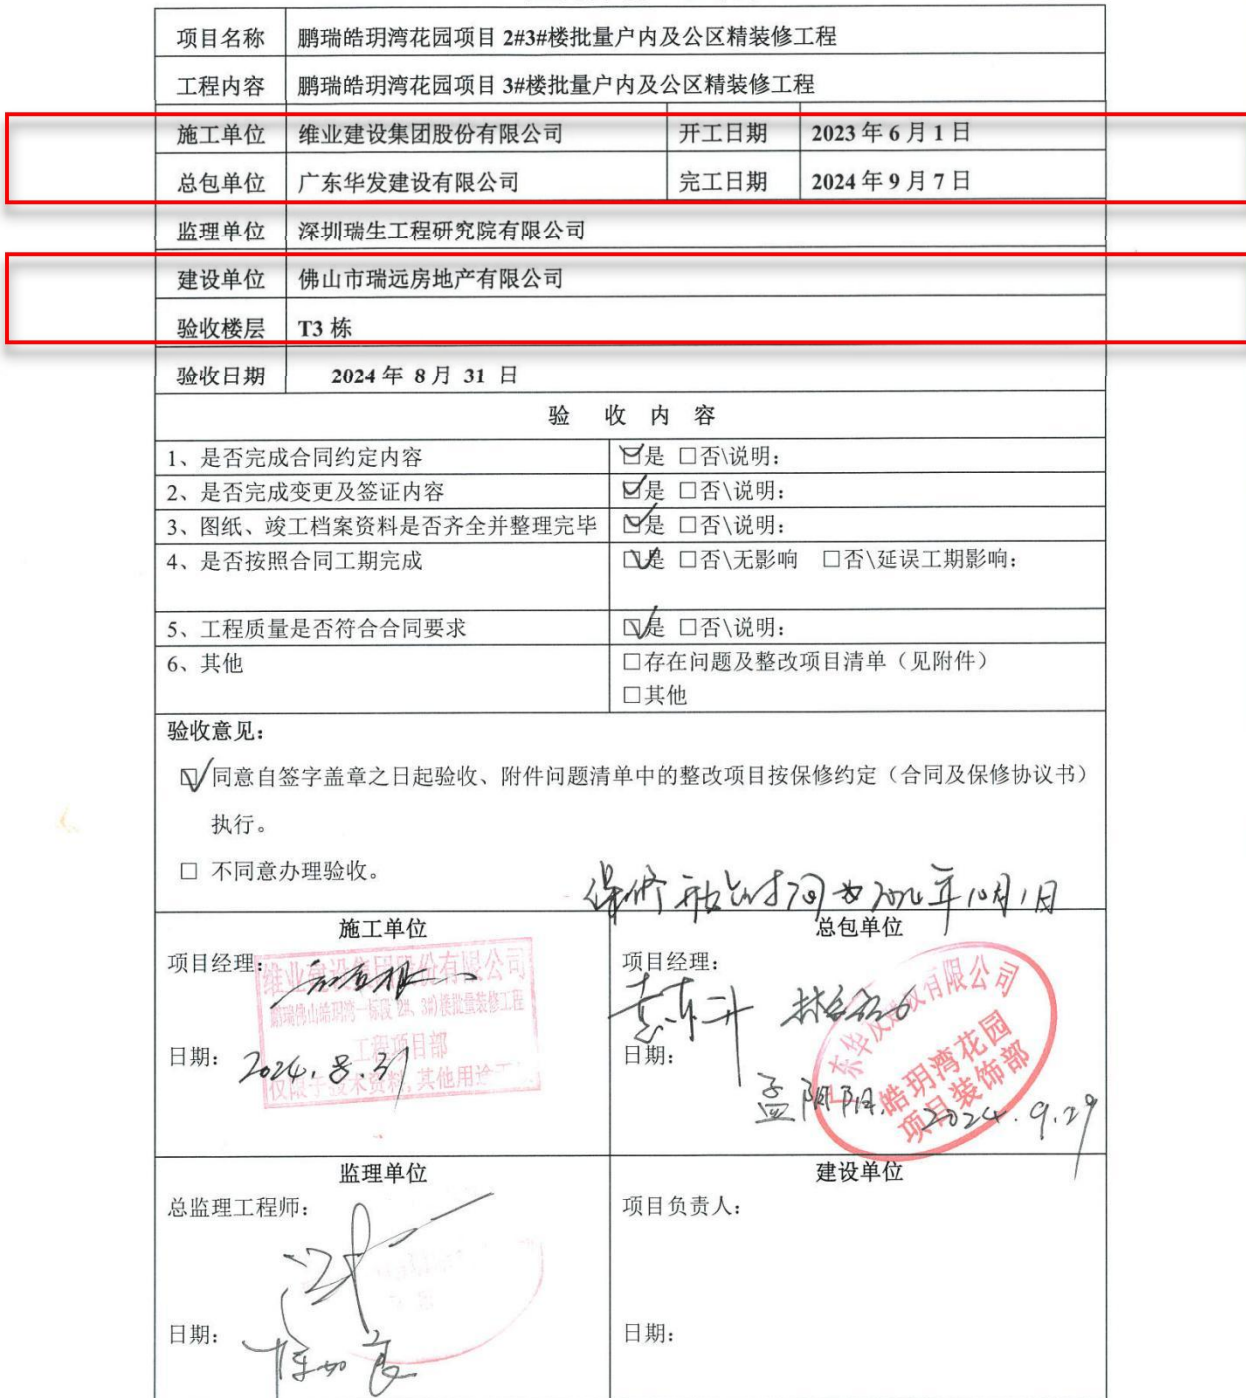 项目名称 鹏瑞皓玥湾花园项目 2#3#楼批量户内及公区精装修工程
工程内容 鹏瑞皓玥湾花园项目 3#楼批量户内及公区精装修工程
施工单位 维业建设集团股份有限公司 开工日期 2023 年 6 月 1 日
总包单位 广东华发建设有限公司 完工日期 2024 年 9 月 7 日
监理单位 深圳瑞生工程研究院有限公司
建设单位 佛山市瑞远房地产有限公司
验收楼层 T3 栋
验收日期 2024 年 8 月 31 日
验 收 内 容
1、是否完成合同约定内容 ☑是 □否\说明:
2、是否完成变更及签证内容 ☑是 □否\说明:
3、图纸、竣工档案资料是否齐全并整理完毕 ☑是 □否\说明:
4、是否按照合同工期完成 ☑是 □否\无影响 □否\延误工期影响:
5、工程质量是否符合合同要求 ☑是 □否\说明:
6、其他 □存在问题及整改项目清单（见附件）
□其他
验收意见:
☑同意自签字盖章之日起验收、附件问题清单中的整改项目按保修约定（合同及保修协议书）
执行。
□ 不同意办理验收。
保修开始时间为2024年10月1日
施工单位 总包单位
项目经理: 项目经理:
维业建设集团股份有限公司
鹏瑞佛山皓玥湾一标段 2#、3#)楼批量装修工程
工程项目部
仅限于技术资料,其他用途
日期: 2024.8.31
广东华发建设有限公司
皓玥湾花园
项目装饰部
日期: 孟阴阳 2024.9.29
监理单位 建设单位
总监理工程师: 项目负责人:
日期: 日期: